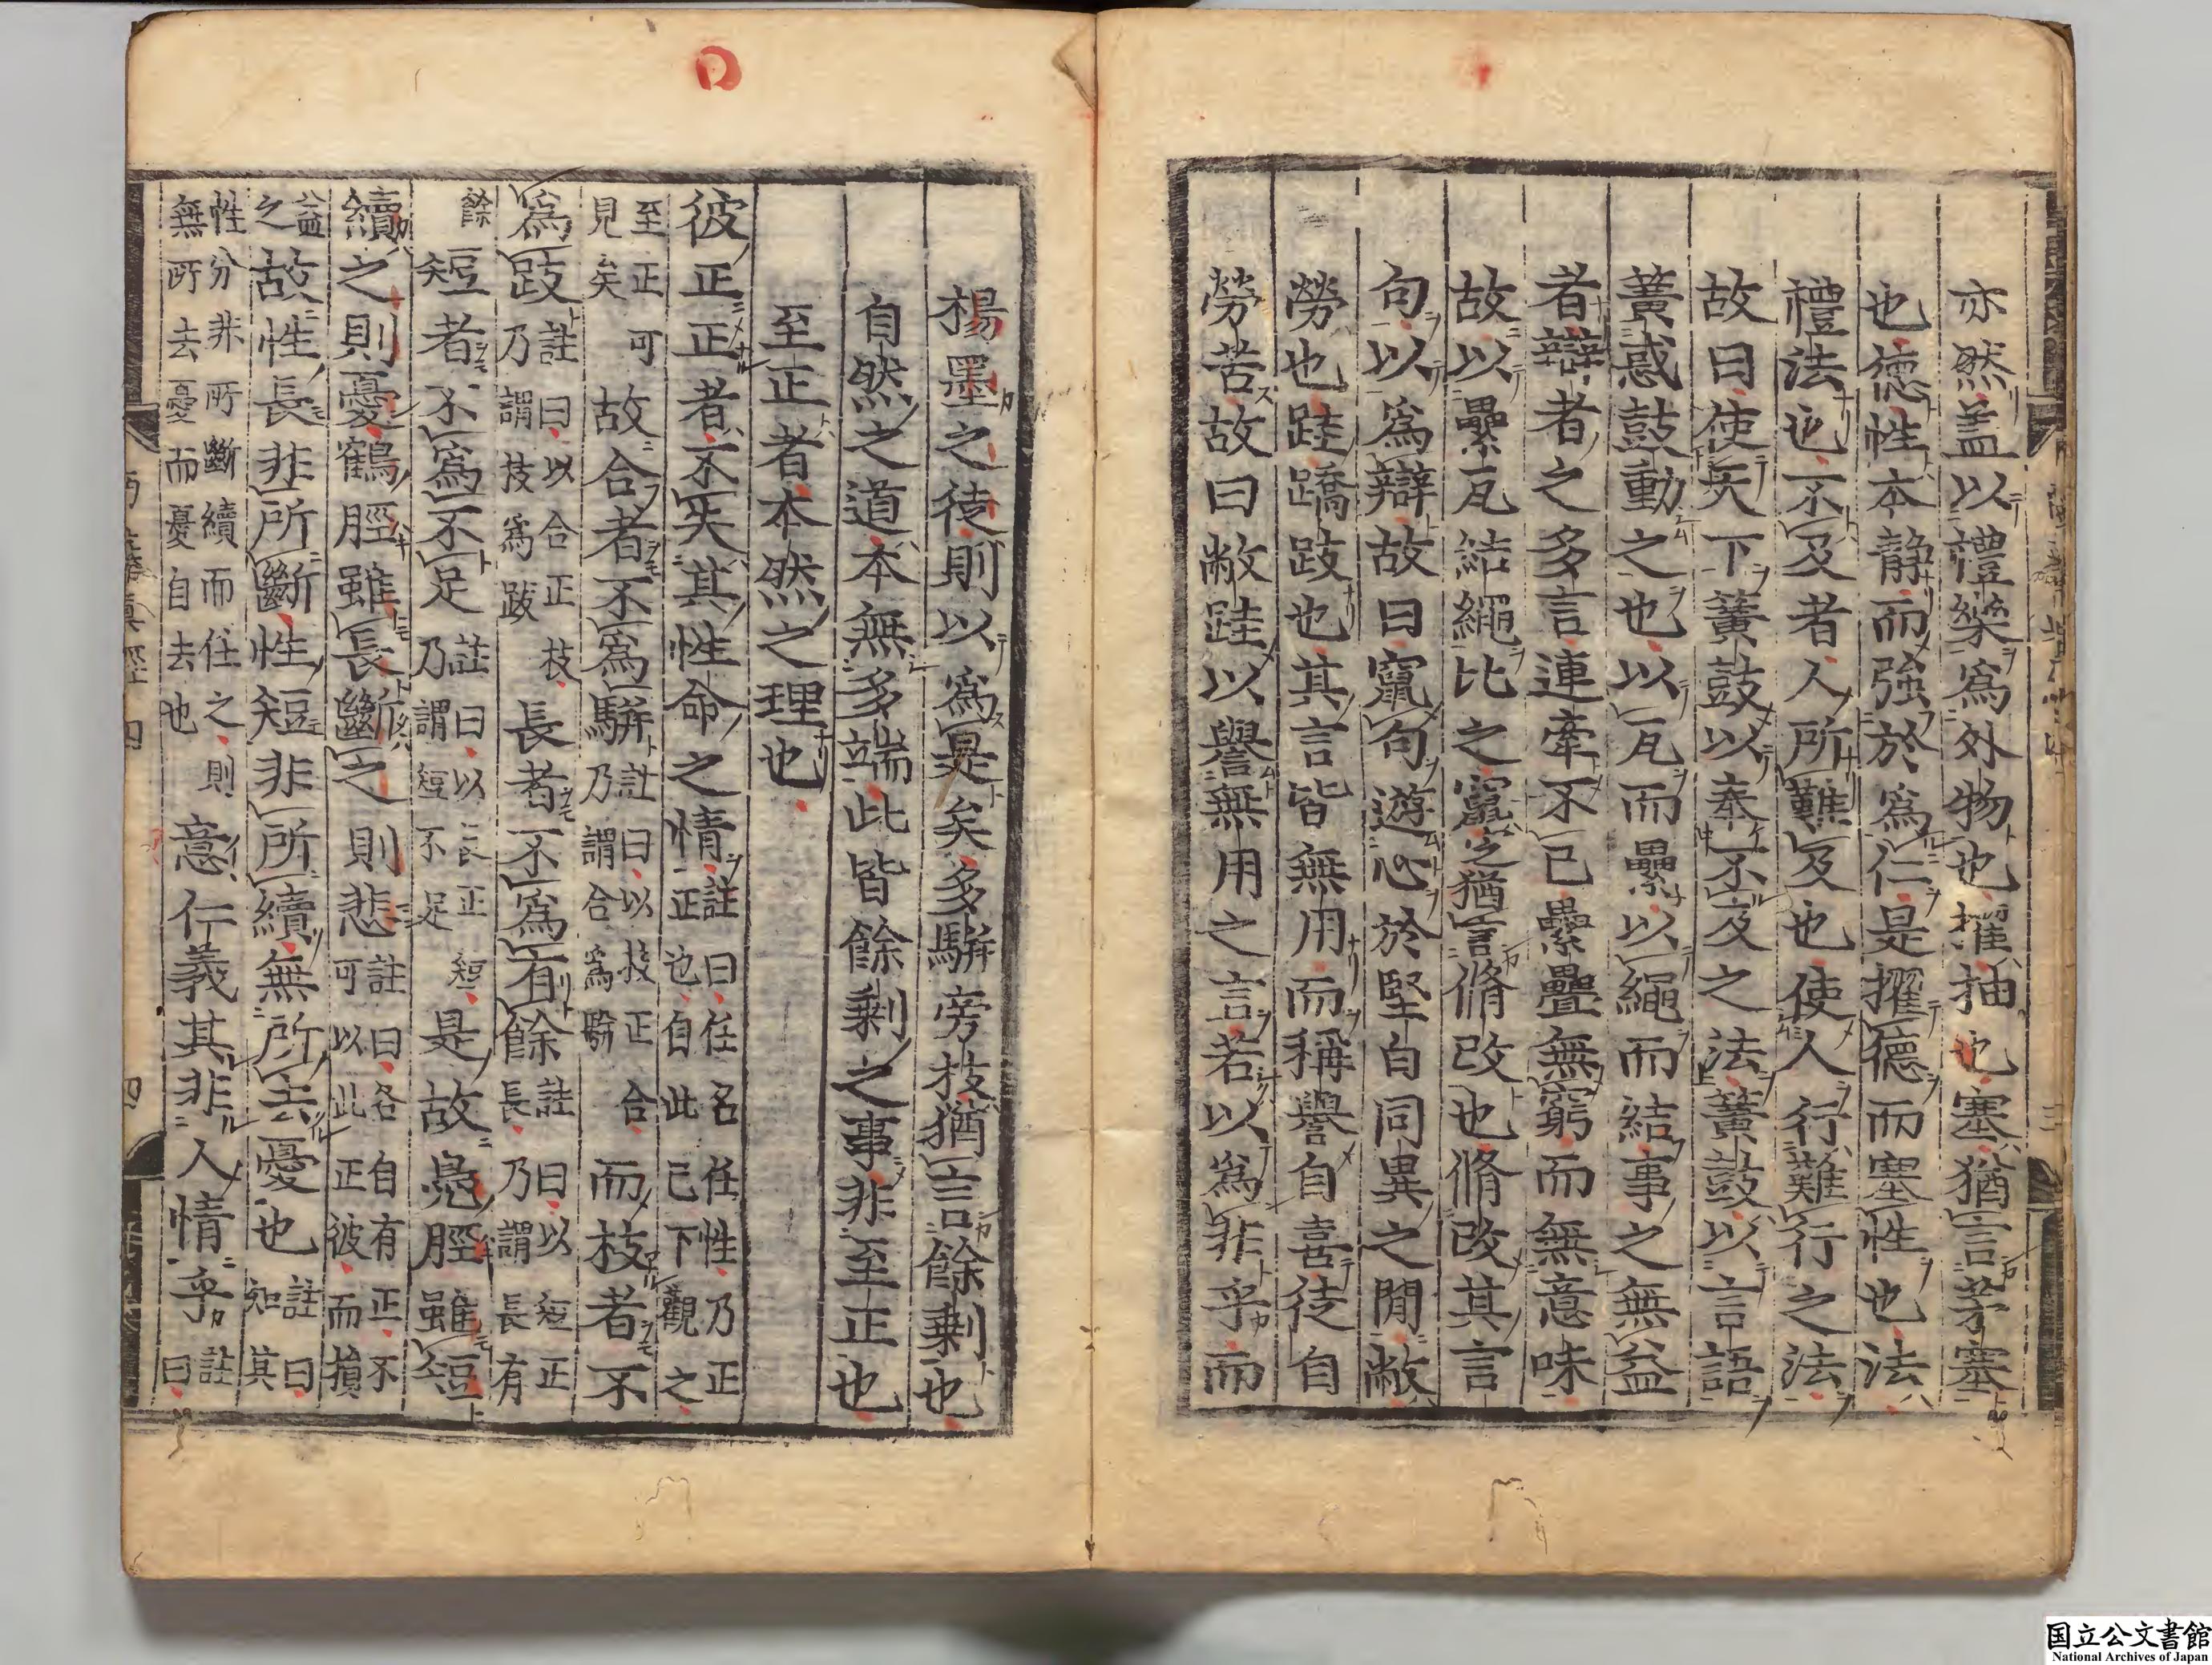 亦然盖以禮樂爲外物也擢抽也塞猶言茅塞
也德性本静而強於爲仁是擢德而塞性也法
禮法也不及者人所難及也使人行難行之法
故曰使天下簧鼓以奉不及之法簧鼓以言語
簧惑鼓動之也以瓦而纍以繩而結事之無益
者辯者之多言連牽不已纍疊無窮而無意味
故以纍瓦結繩比之竄定猶言脩改也脩改其言
句以爲辯故曰竄句遊心於堅白同異之閒敝
勞也跬蹻跂也其言皆無用而稱譽自喜徒自
勞苦故曰敝跬以譽無用之言若以爲非乎而
楊墨之徒則以爲是矣多駢旁枝猶言餘剩也
自然之道本無多端此皆餘剩之事非至正也
至正者本然之理也
彼正正者不失其性命之情註曰任名任性乃正
正也自此已下觀之
至正可
見矣
故合者不爲駢註曰以枝正合
乃謂合爲駢
而枝者不
爲跂註曰以合正枝
乃謂技爲跋
長者不爲有餘註曰以短正
長乃謂長有
餘
短者不爲不足註曰以長正短
乃謂短不足
是故鳧脛雖短
續之則憂鶴脛雖長斷之則悲註曰各自有正不
可以此正彼而損
益
之
故性長非所斷性短非所續無所去憂也註曰
知其
性分非所斷續而任之則
無所去憂而憂自去也
意仁義其非人情乎註
曰
四
四
三
国立公文書館
National Archives of Japan